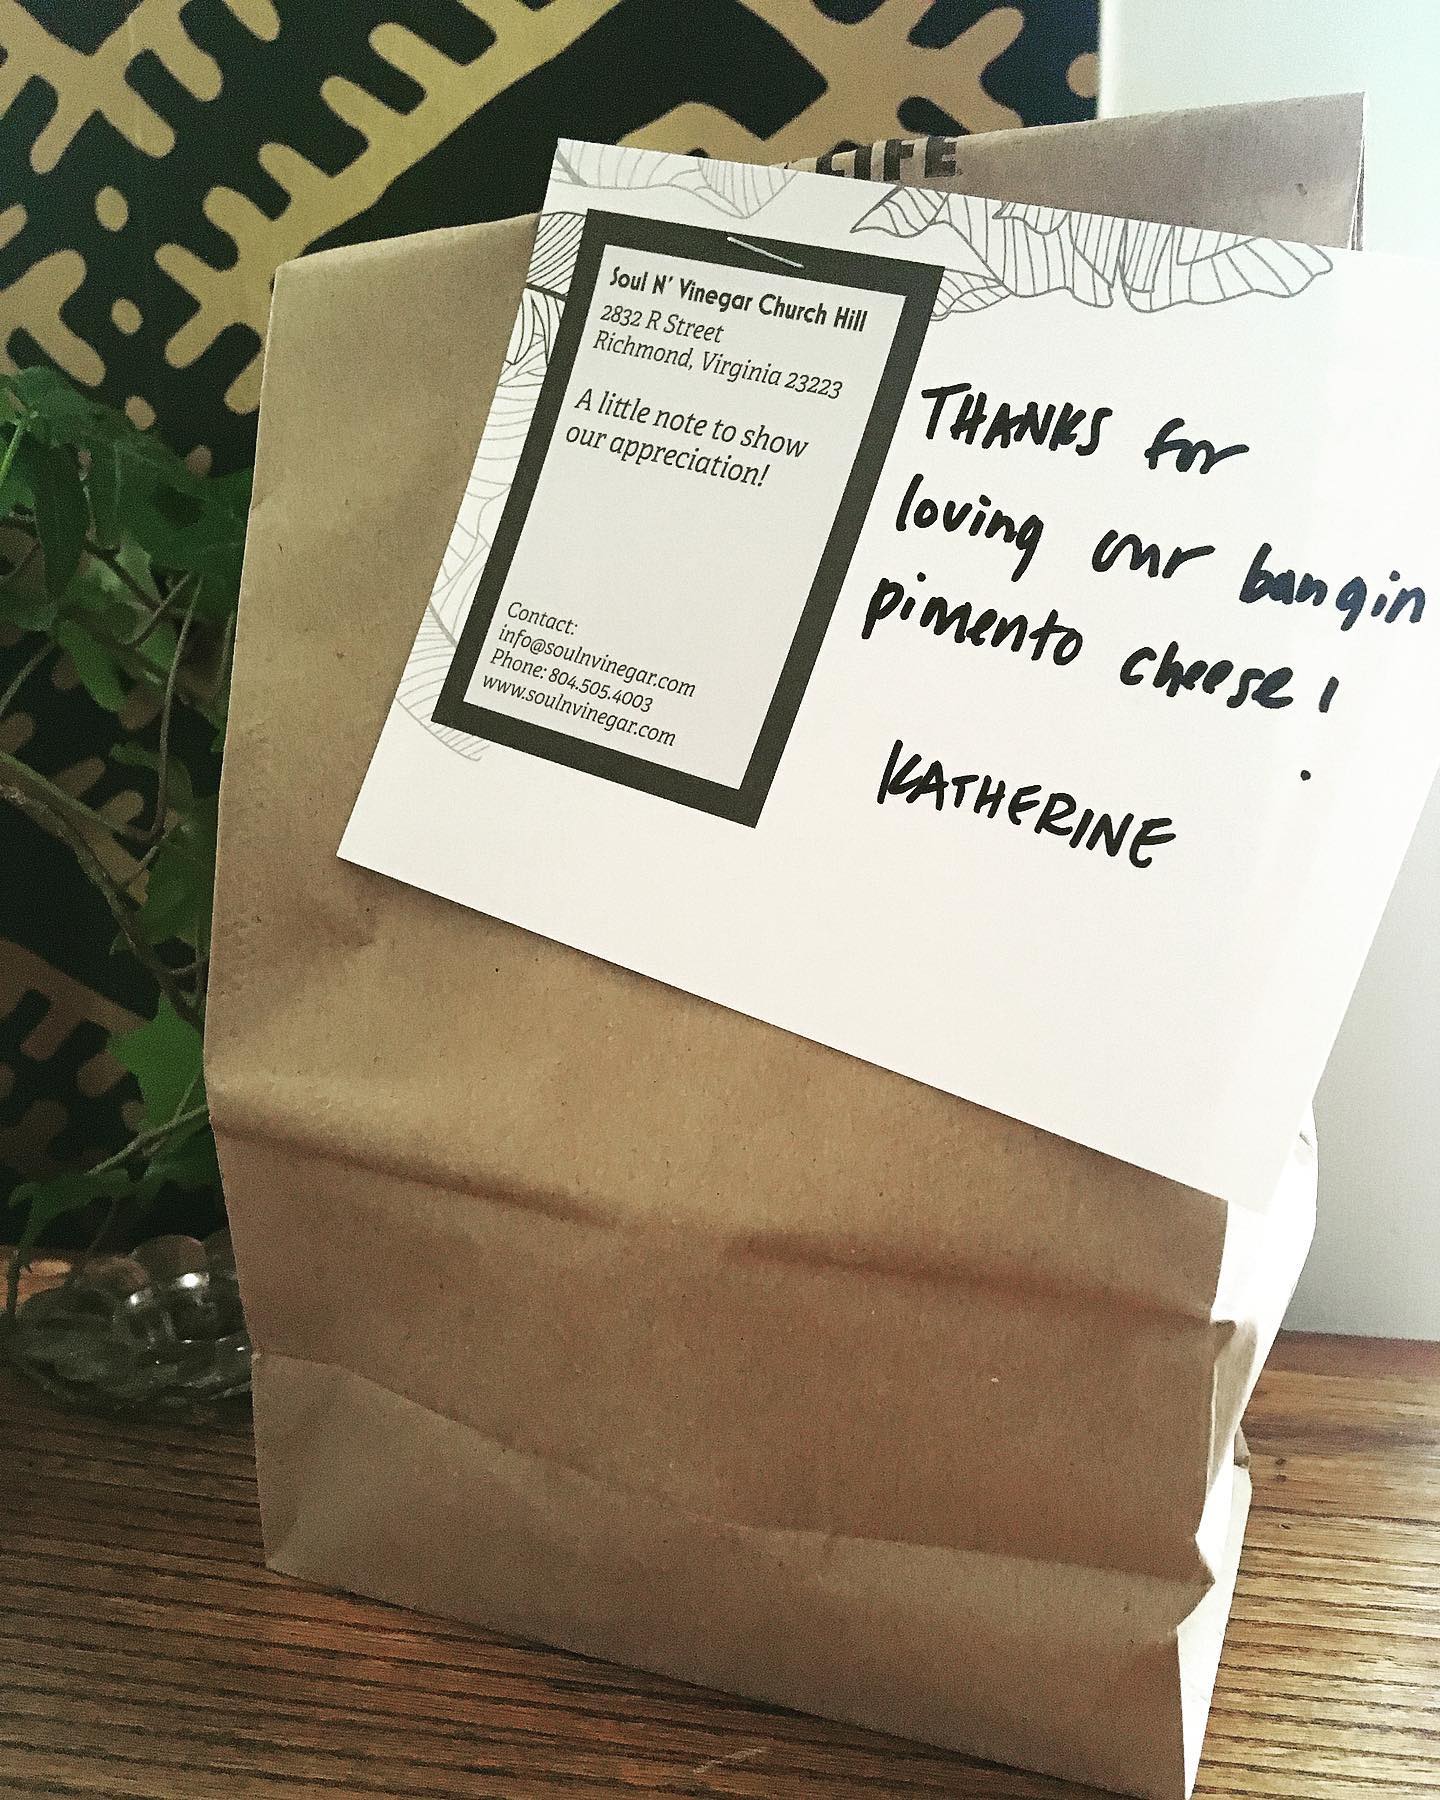 LIFE
Soul N' Vinegar Church Hill
2832 R Street
Richmond, Virginia 23223
A little note to show
our appreciation!
Contact:
info@soulnvinegar.com
Phone: 804.505.4003
www.soulnvinegar.com
THANKS for
loving our bangin
pimento cheese!
KATHERINE